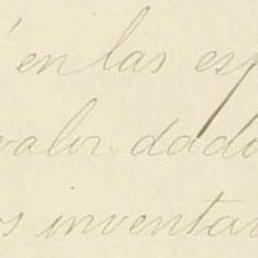 en las esp
valor dado
os inventar